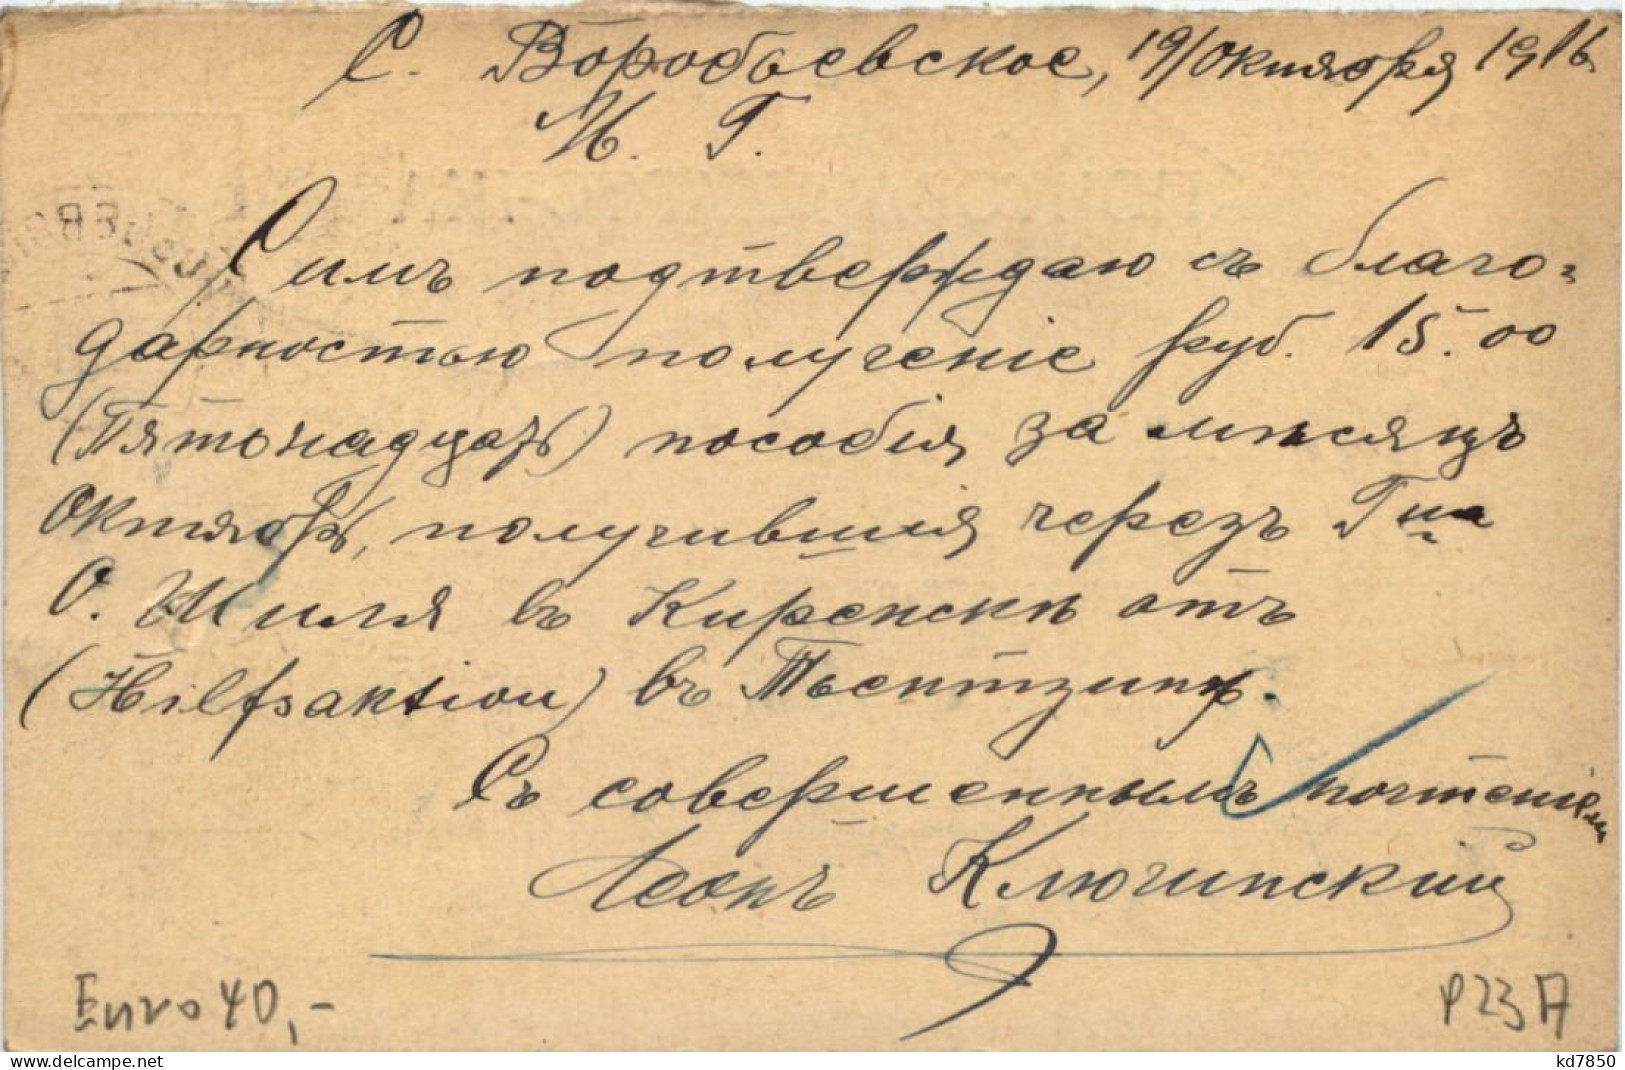 С. Воробьевское, 19/Октября 1916
М. Г.
Симъ подтверждаю съ благо-
дарностью полученіе руб. 15.00
(Пятьнадцать) пособія за мѣсяцъ
Октябрь, получившія черезъ Гна
О. Шиля въ Киренскѣ отъ
(Hilfsaktion) въ Тьентзинѣ.
Съ совершеннымъ почтеніемъ
Леонъ Ключинскій
Euro 40,-
P 23 A
kd7850
www.delcampe.net